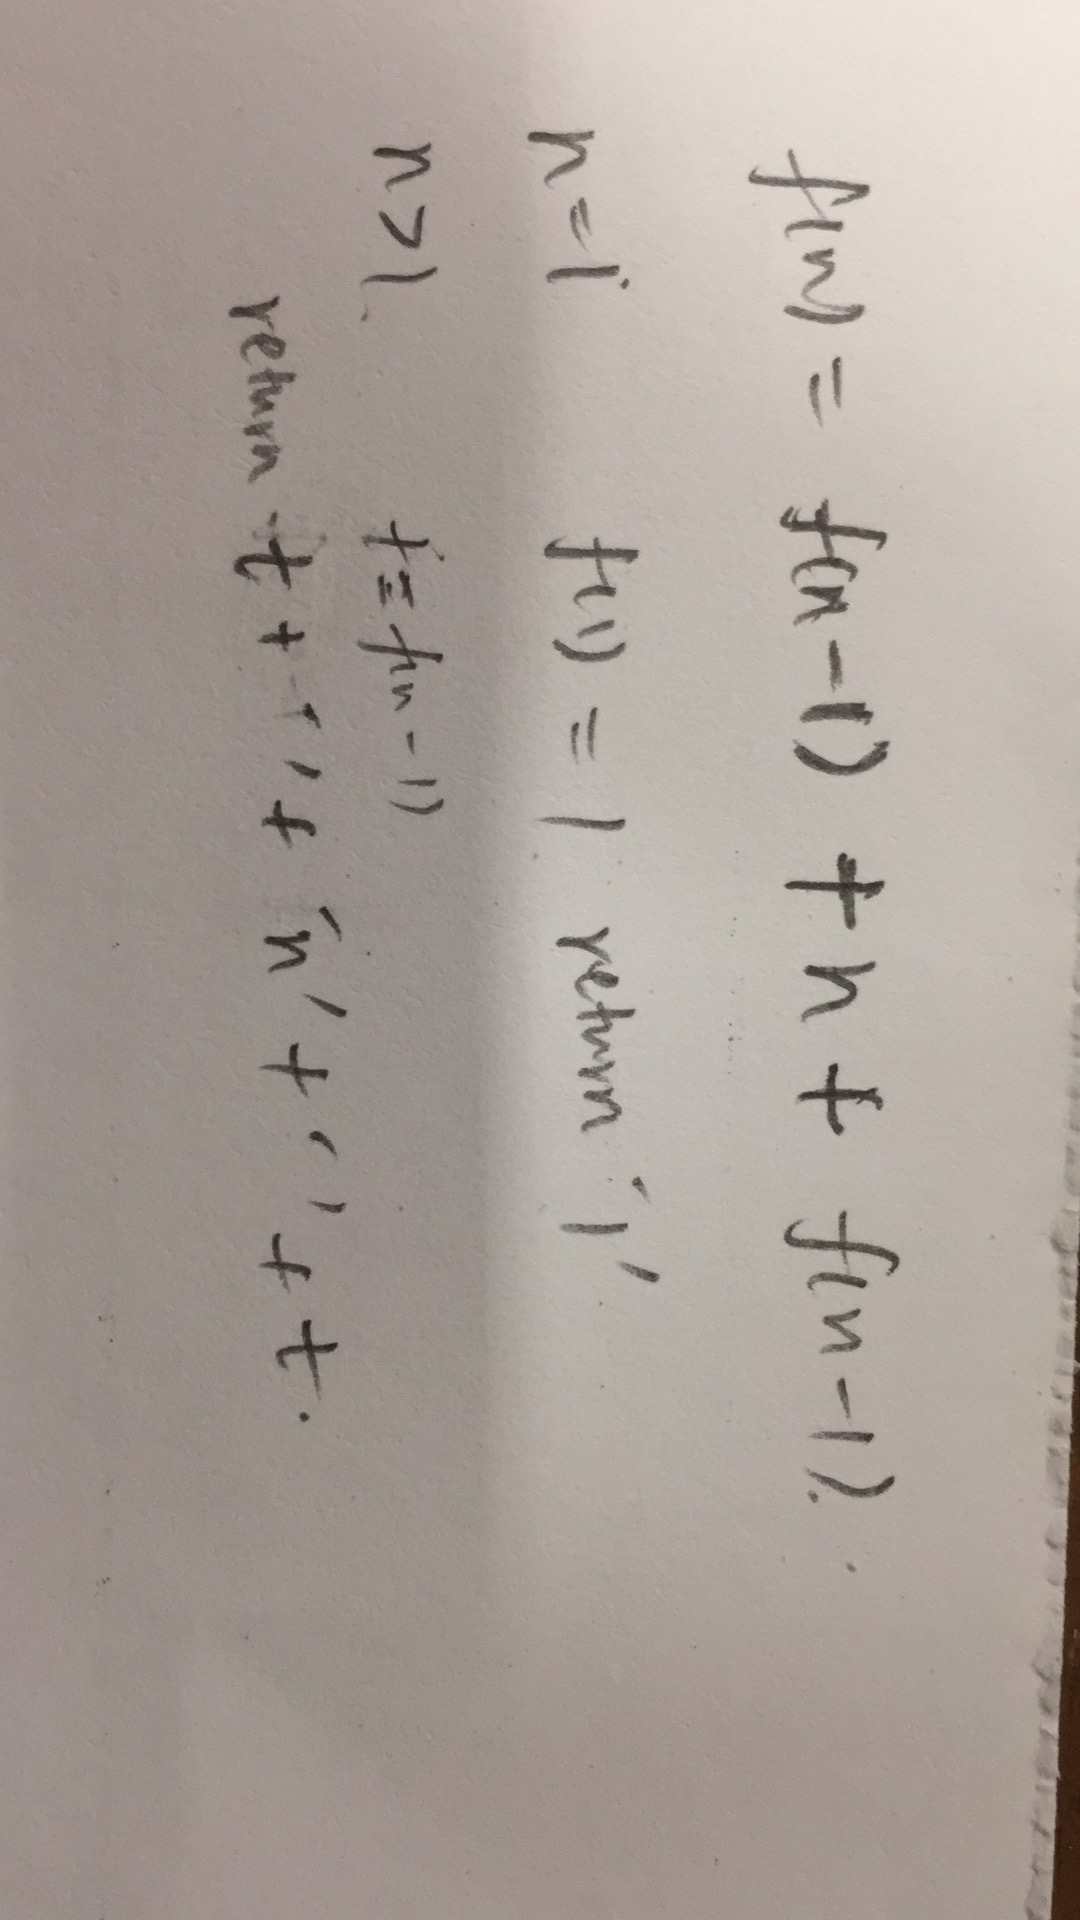 f(n) = f(n-1) + n + f(n-1).
n=1 f(1) = 1 return '1'
n>1. t= f(n-1)
return t + ' ' + 'n' + ' ' + t.